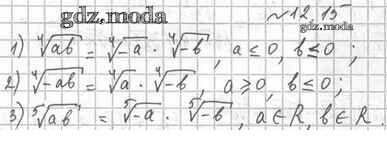 gdz.moda
№12.15
gdz.moda
1) ∜ab = ∜-a · ∜-b, a ≤ 0, b ≤ 0;
2) ∜-ab = ∜a · ∜-b, a ⩾ 0, b ≤ 0;
3) ⁵√ab = ⁵√-a · ⁵√-b, a ∈ R, b ∈ R.